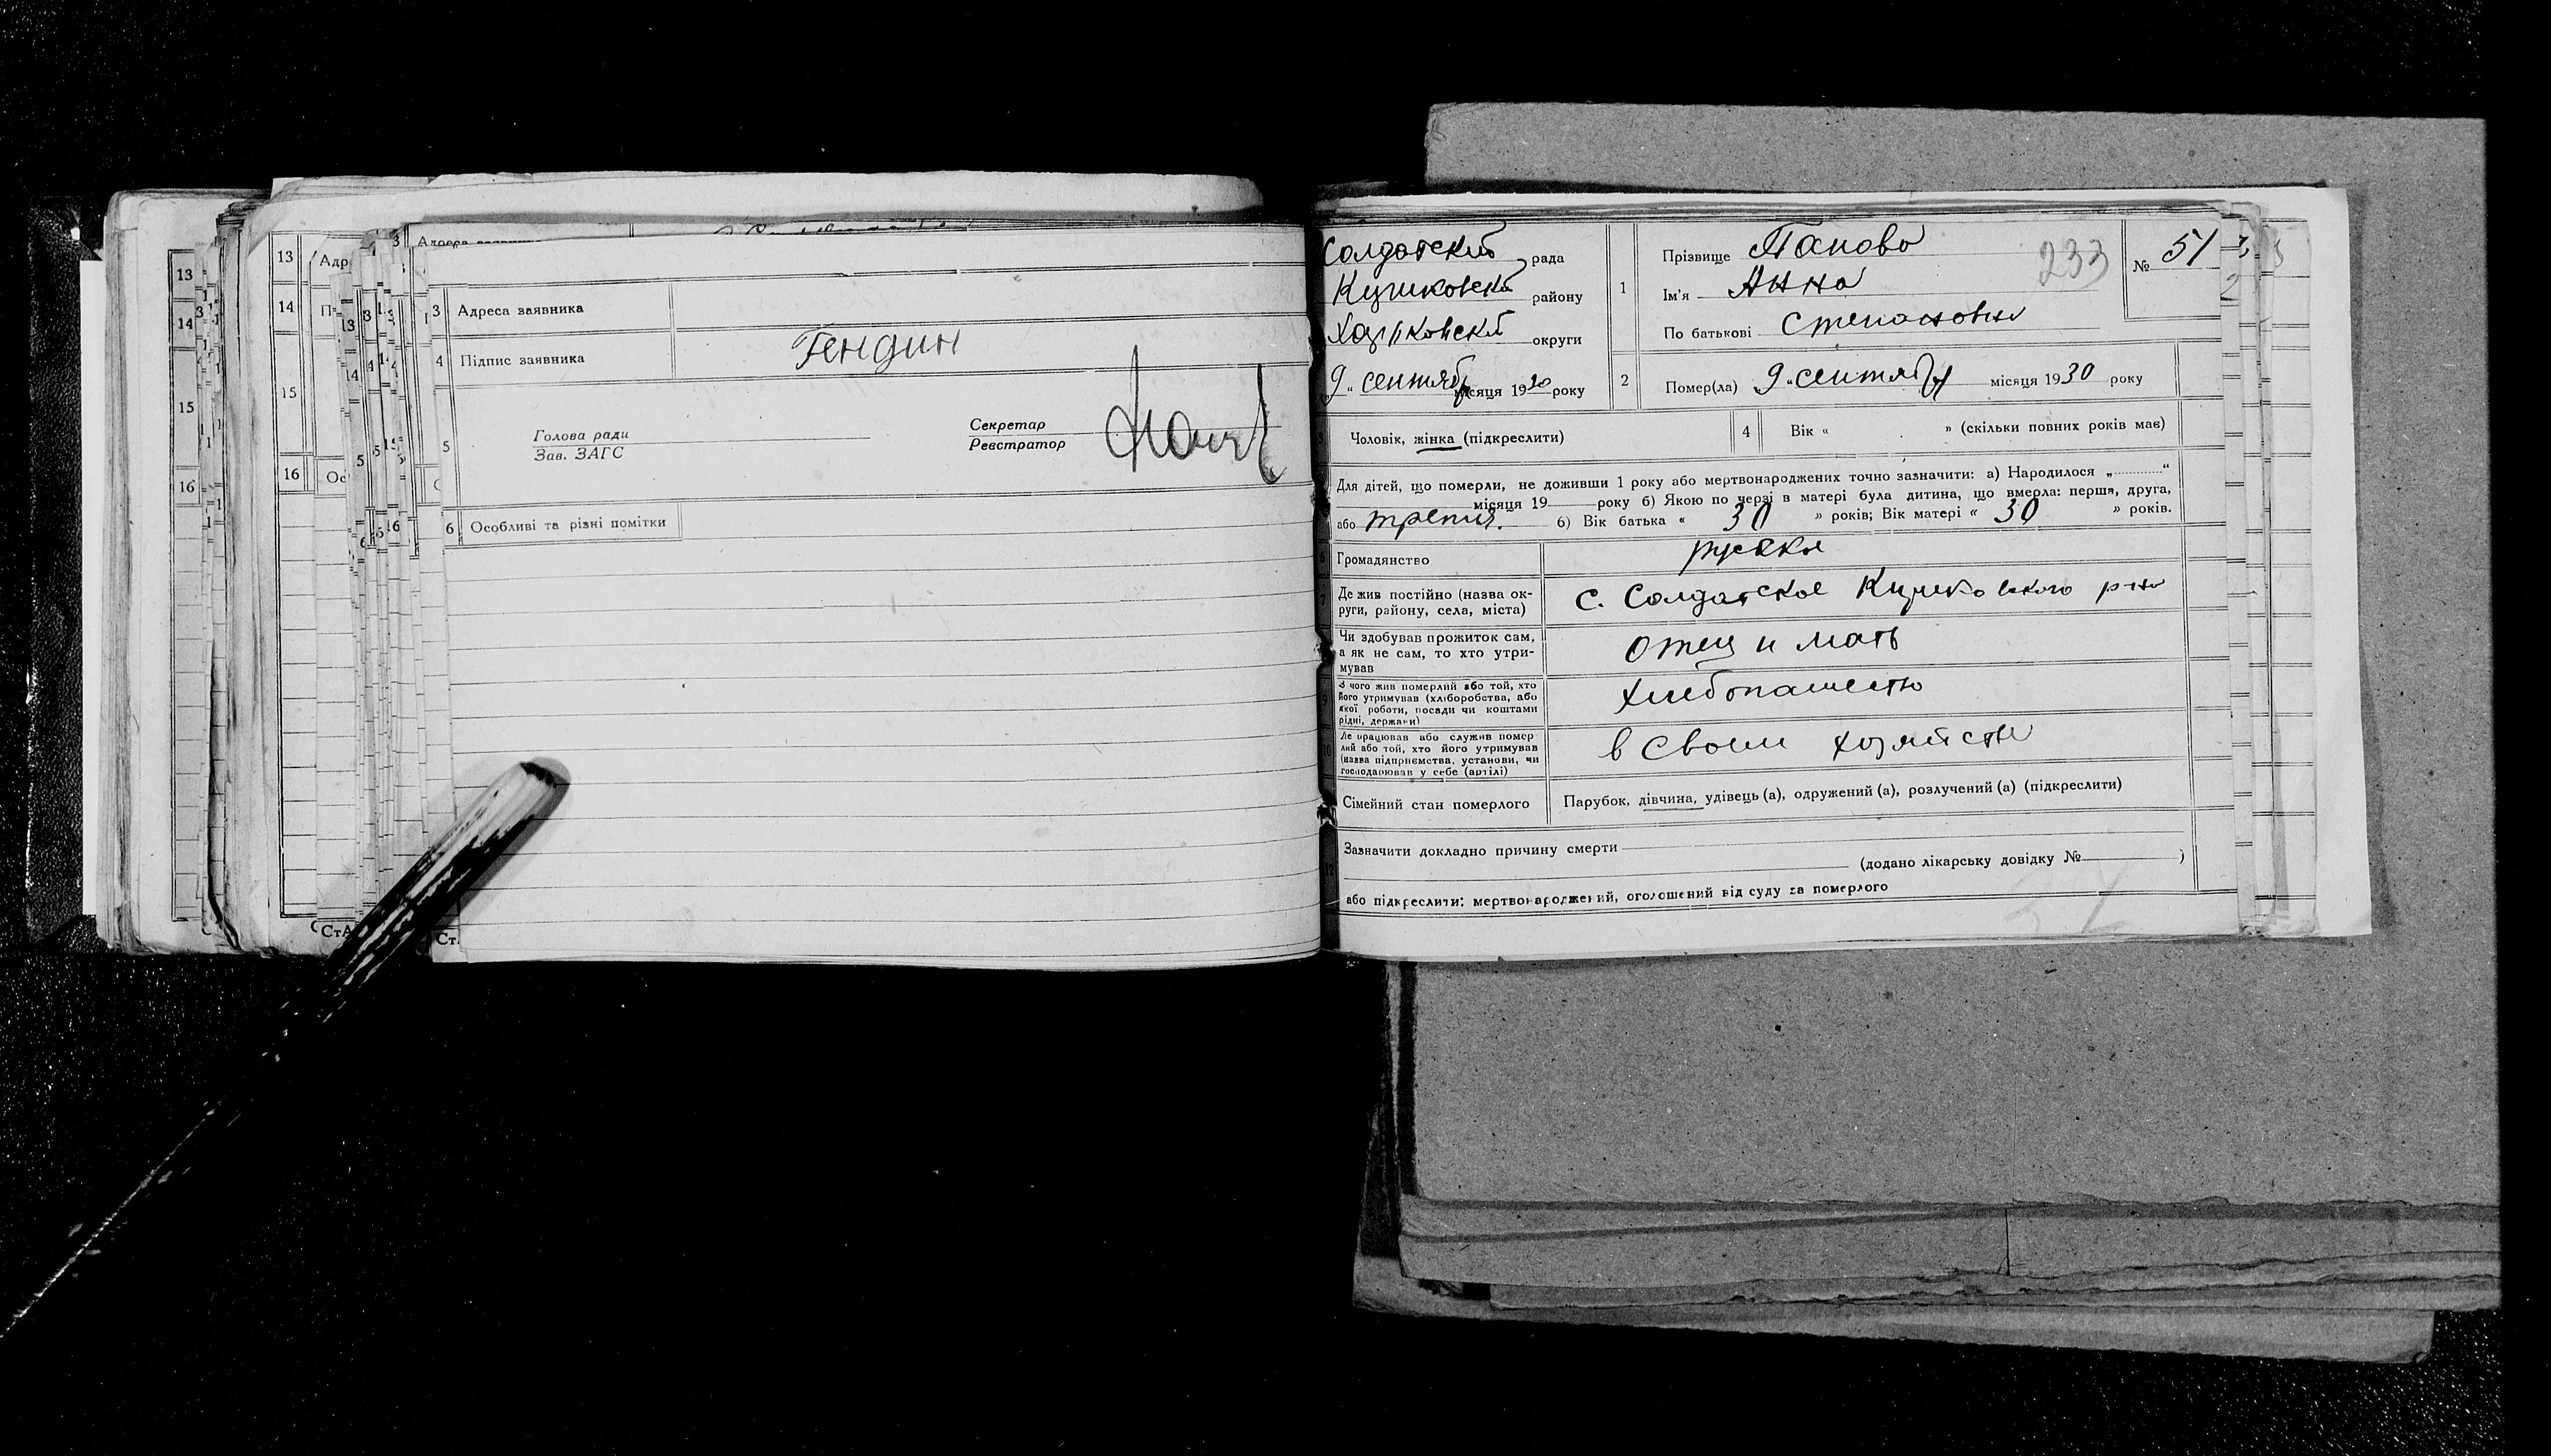 13
14
15
16
13 Адр
14
15
16 Ос
3 Адреса заявника
4 Підпис заявника Гендин
5
Голова ради
Зав. ЗАГС
Секретар
Реєстратор
6 Особливі та різні помітки
Солдатский рада
району
округи
9 " сентябр місяця 1930 року
1
Прізвище Попова
Ім'я Анна
По батькові Степановна
233
№ 51
2 Помер(ла) 9 " сентября місяця 1930 року
Чоловік, жінка (підкреслити)
4 Вік « » (скільки повних років має)
Для дітей, що померли, не доживши 1 року або мертвонароджених точно зазначити: а) Народилося „ “
місяця 19 року б) Якою по черзі в матері була дитина, що вмерла: перша, друга,
або третя. б) Вік батька « 30 » років; Вік матері « 30 » років.
Громадянство русская
Де жив постійно (назва ок-
руги, району, села, міста)
с. Солдатское р-на
Чи здобував прожиток сам,
а як не сам, то хто утри-
мував
отец и мать
З чого жив померлий або той, хто
його утримував (хліборобства, або
якої роботи, посади чи коштами
рідні, держави)
хлебопашество
Де працював або служив помер-
лий або той, хто його утримував
(назва підприємства, установи, чи
господарював у себе (артілі)
в своем хозяйстве
Сімейний стан померлого
Парубок, дівчина, удівець (а), одружений (а), розлучений (а) (підкреслити)
Зазначити докладно причину смерти
(додано лікарську довідку № )
або підкреслити: мертвонароджений, оголошений від суду за померлого